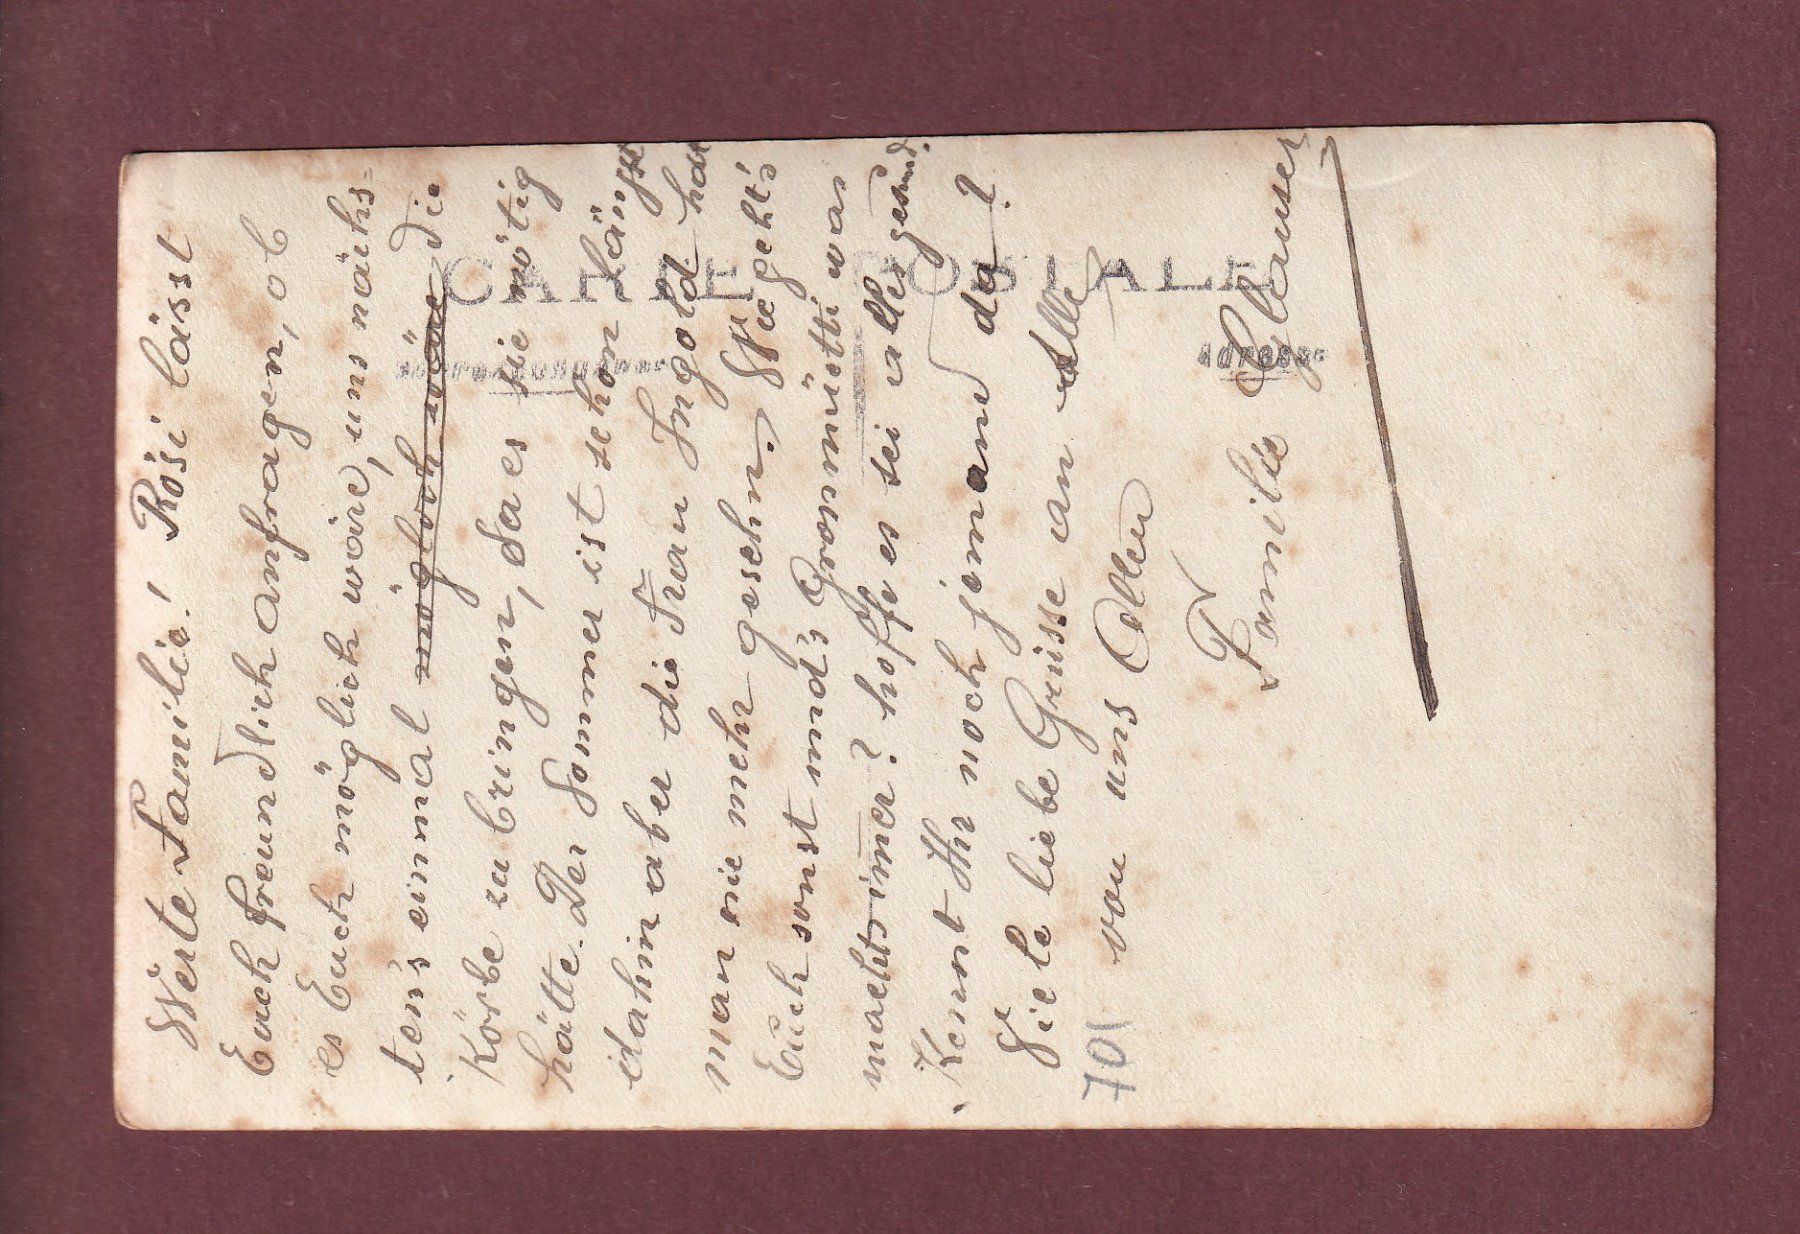 CARTE POSTALE
Correspondance
Adresse
Werte Familie! Rösi lässt
Euch freundlich anfragen, ob
es Euch möglich wäre, uns nächs-
tens einmal möglich wäre die
Körbe zu bringen, da es sie nötig
hätte. Der Sommer ist schon längst
dahin aber die Frau Ingold hat
man nie mehr gesehn. Wie geht's
Euch sonst und's Grosmüetti was
macht's imer? hoffe es sei alles gesund.
Kennt Ihr noch jemand da?
Viele liebe Grüsse an Alle
von uns Allen
Familie Clauser
701